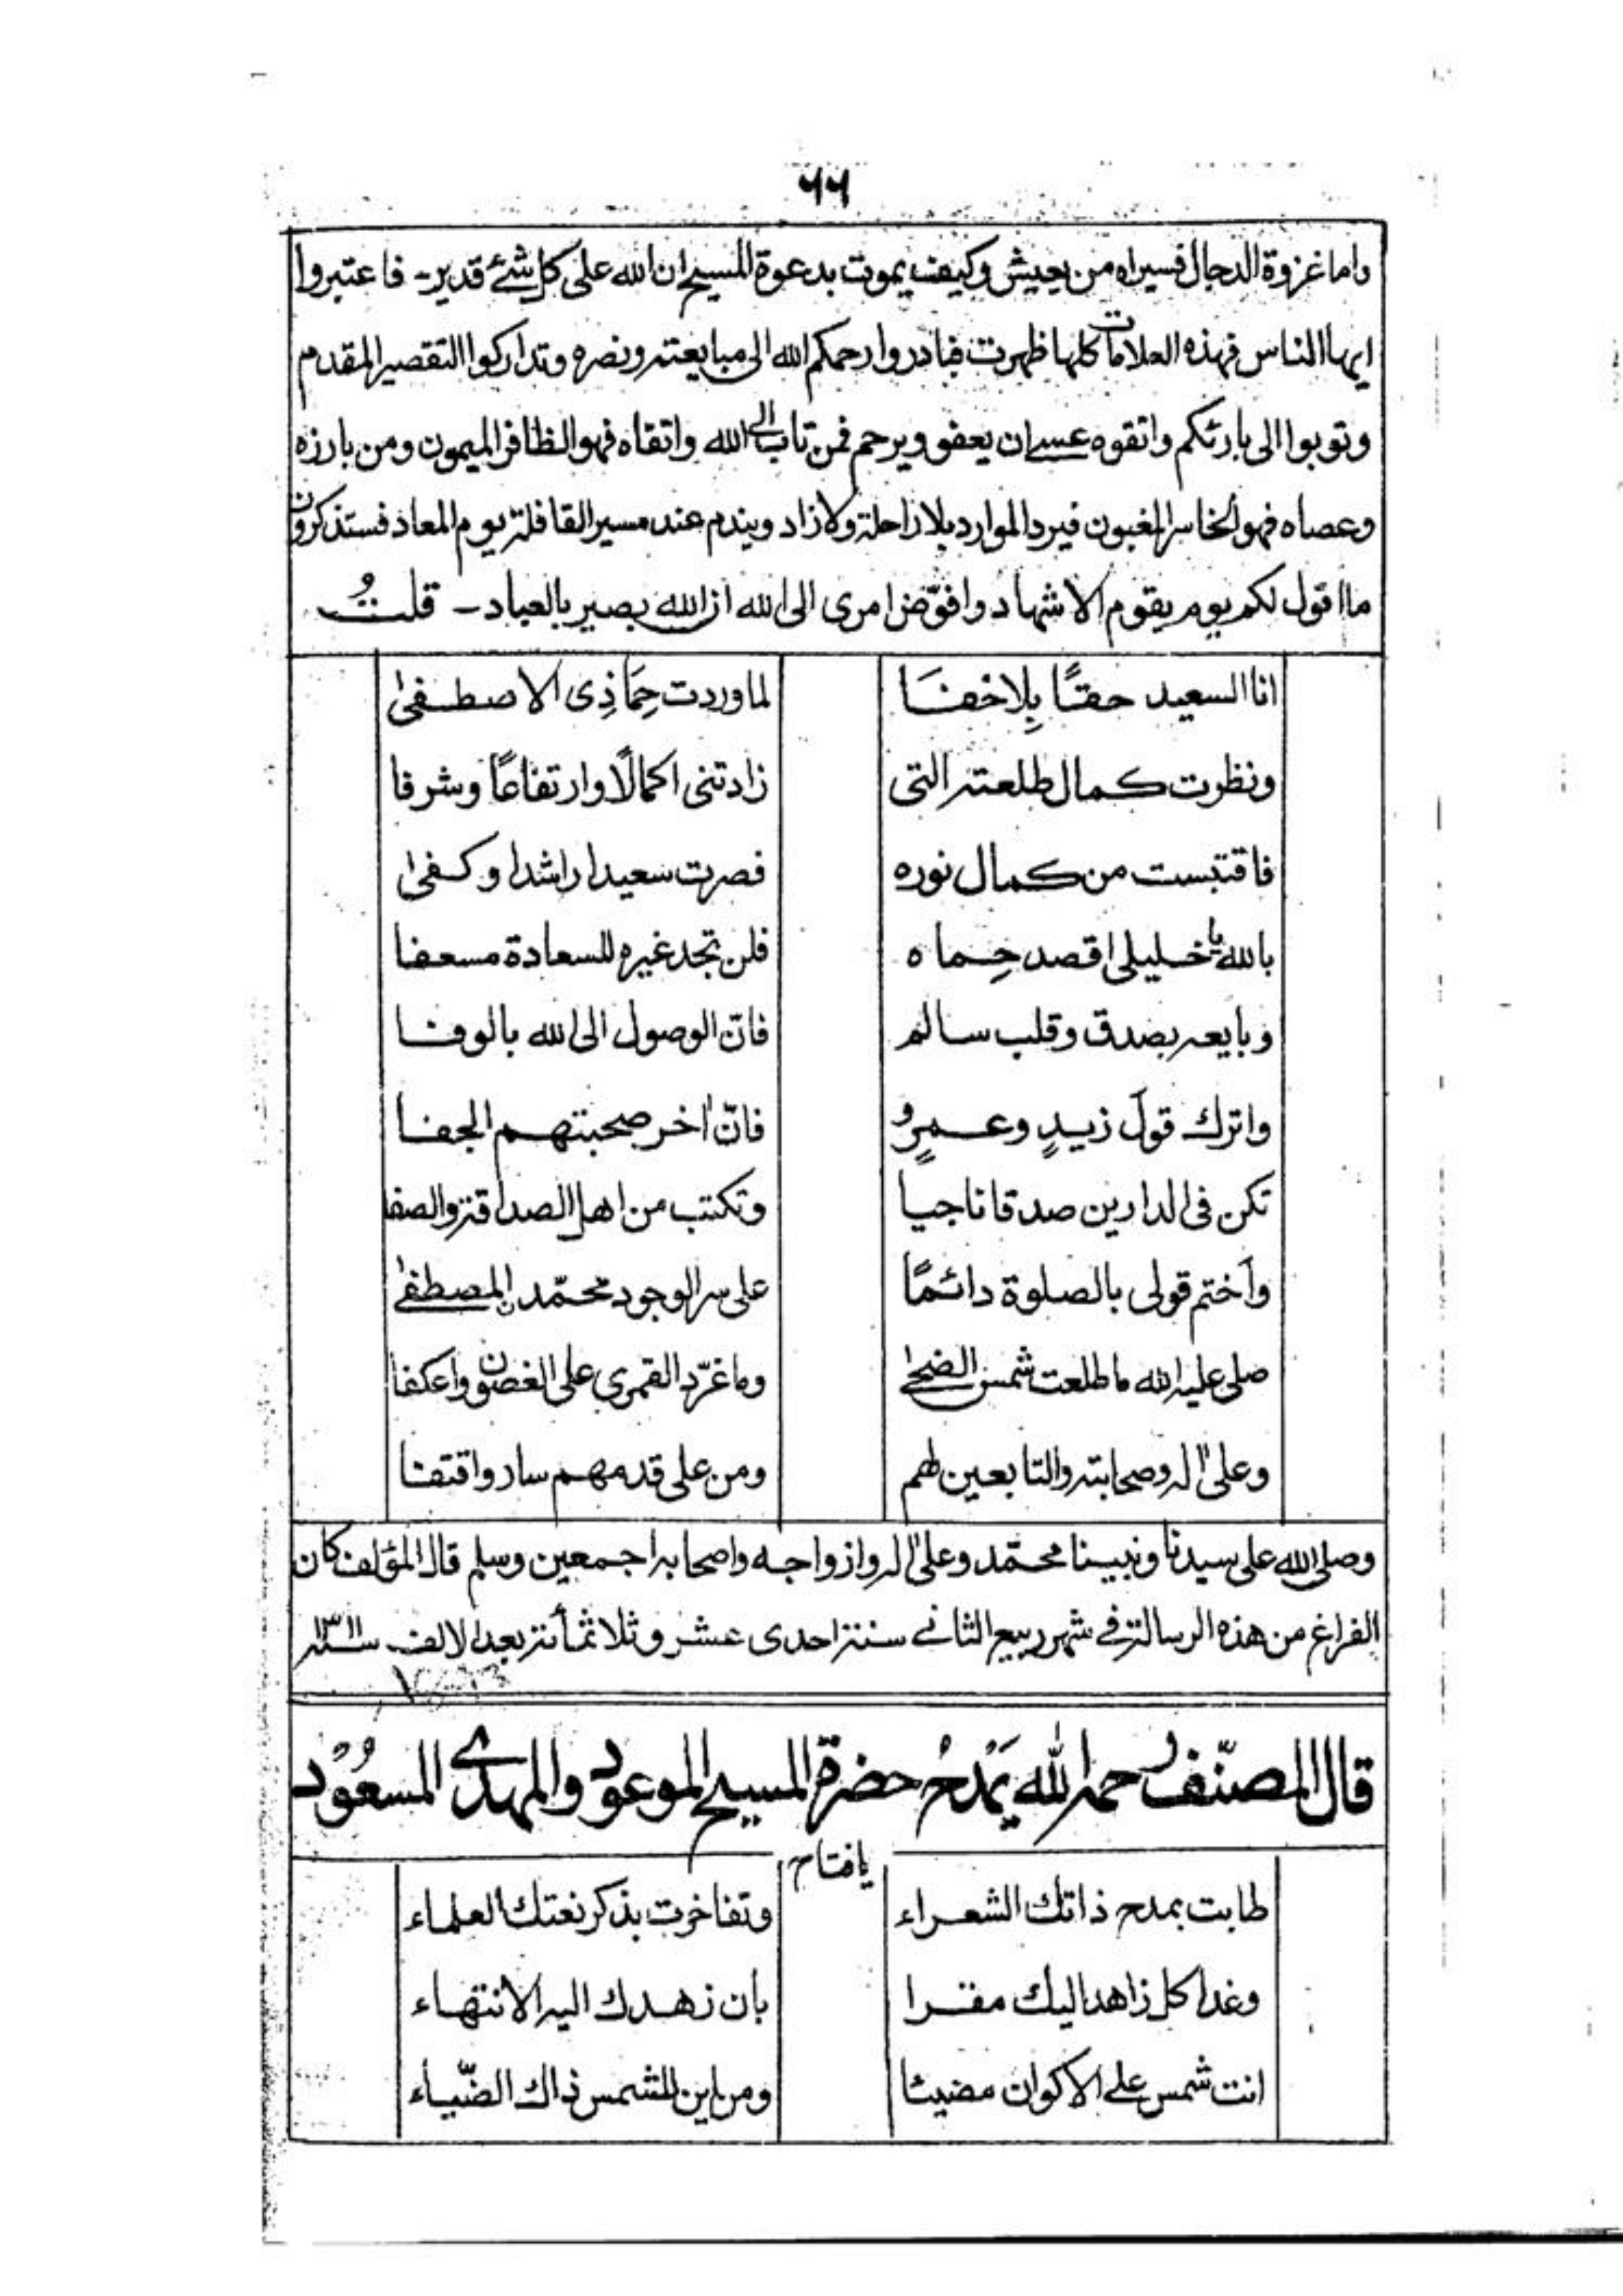 ٦٦
واما غزوة الدجال فسيراه من يعيش وكيف يموت بدعوة المسيح ان الله على كل شئ قدير۔ فاعتبروا
ايها الناس فهذه العلامات كلها ظهرت فبادروا رحمكم الله الى مبايعته ونصره وتداركوا التقصير المقدم
وتوبوا الى بارئكم واتقوه عسى ان يعفو ويرحم فمن تاب الى الله واتقاه فهو الظافر الميمون ومن بارزه
وعصاه فهو الخاسر المغبون فيرد الموارد بلا زاحلة ولا زاد ويندم عند مسير القافلة يوم المعاد فستذكرون
ما اقول لكم يوم يقوم الاشهاد وافوّض امرى الى الله ان الله بصير بالعباد۔ قلتُ
انا السعيد حقًا بِلا خفَا لما وردت حِمَا ذِى الاصطفىٰ
ونظرت كمال طلعته التى زادتنى اكمالًا وارتفاعًا وشرفا
فاقتبست من كمال نوره فصرت سعيدا راشدا وكفىٰ
بالله يا خليلى اقصد حِماه فلن تجد غيره للسعادة مسعفا
وبايعه بصدق وقلب سالم فانّ الوصول الى الله بالوفا
واترك قولَ زيدٍ وعمرٍو فانّ اٰخر صحبتهم الجفا
تكن فى الدارين صدقا ناجيا وتكتب من اهل الصداقة والصفا
وَاختم قولى بالصلوة دائمًا على سر الوجود محمّد المصطفىٰ
صلى عليه الله ما طلعت شمس الضحىٰ وما غرّد القمري على الغصون واعكفا
وعلىٰ اٰله وصحابته والتابعين لهم ومن على قدمهم سار واقتفا
وصلى الله على سيدنا ونبينا محمّد وعلىٰ اٰله وازواجه واصحابه اجمعين وسلم قال المؤلف كان
الفراغ من هذه الرسالة فى شهر ربيع الثانى سنة احدى عشر وثلاثمأئة بعد الالف سنة ١٣١١
قال المصنّف رحمه الله يَمْدحُ حضرة المسيح الموعود والمهدى المسعُوْد
يا فتاح
طابت بمدح ذاتك الشعراء وتفاخرت بذكر نعتك العلماء
وغدا كل زاهد اليك مقرا بأن زهدك اليه الانتهاء
انت شمس على الاكوان مضيئا ومن اين للشمس ذاك الضّياء